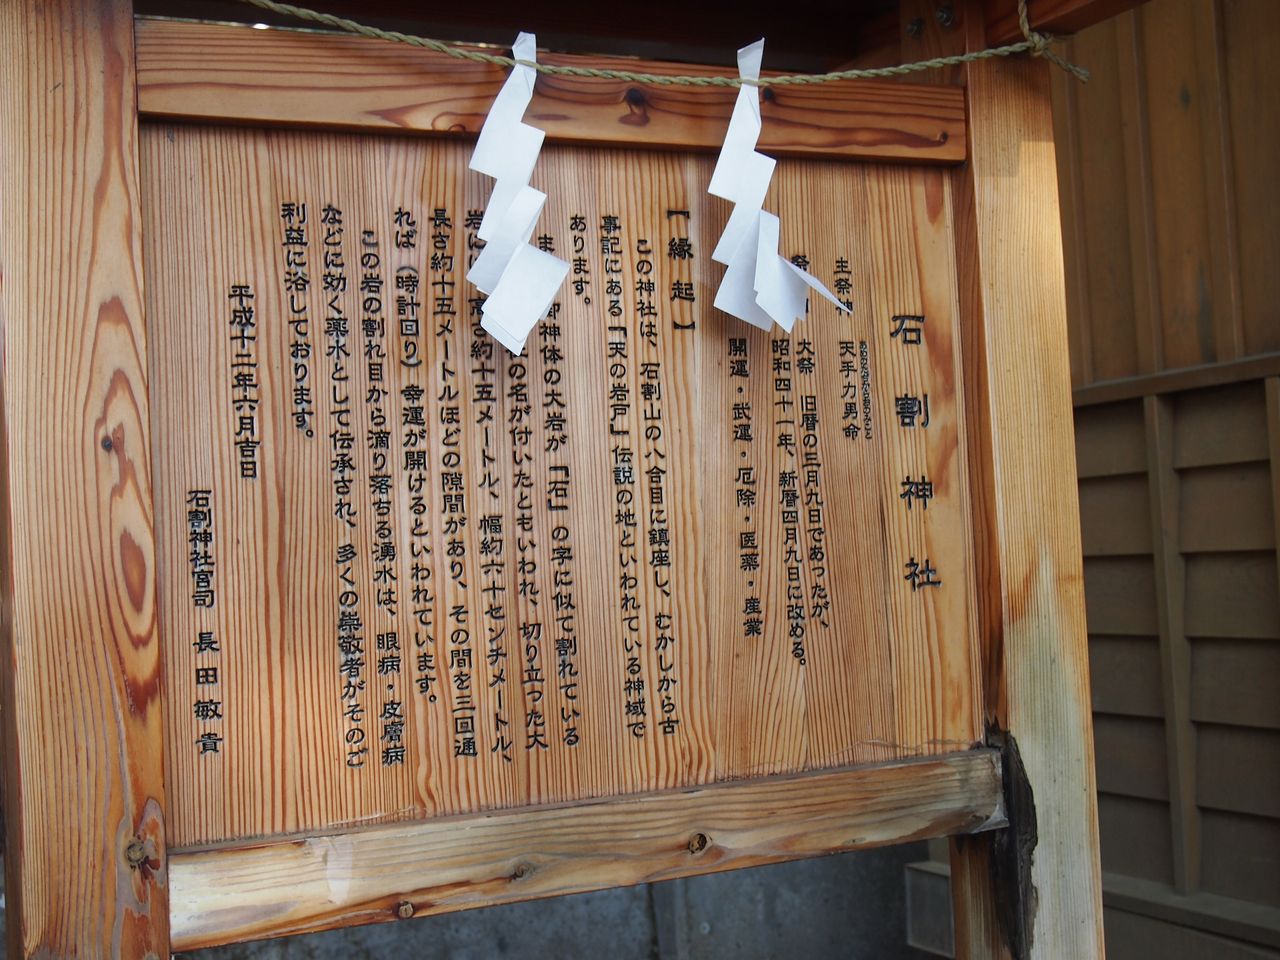 石割神社
主祭神 天手力男命
あめのたぢからおのみこと
大祭 旧暦の三月九日であったが、
昭和四十一年、新暦四月九日に改める。
開運・武運・厄除・医薬・産業
【縁起】
この神社は、石割山の八合目に鎮座し、むかしから古
事記にある「天の岩戸」伝説の地といわれている神域で
あります。
ま 御神体の大岩が「石」の字に似て割れている
の名が付いたともいわれ、切り立った大
岩に 高さ約十五メートル、幅約六十センチメートル、
長さ約十五メートルほどの隙間があり、その間を三回通
れば(時計回り)幸運が開けるといわれています。
この岩の割れ目から滴り落ちる湧水は、眼病・皮膚病
などに効く薬水として伝承され、多くの崇敬者がそのご
利益に浴しております。
平成十二年六月吉日
石割神社宮司 長田敏貴